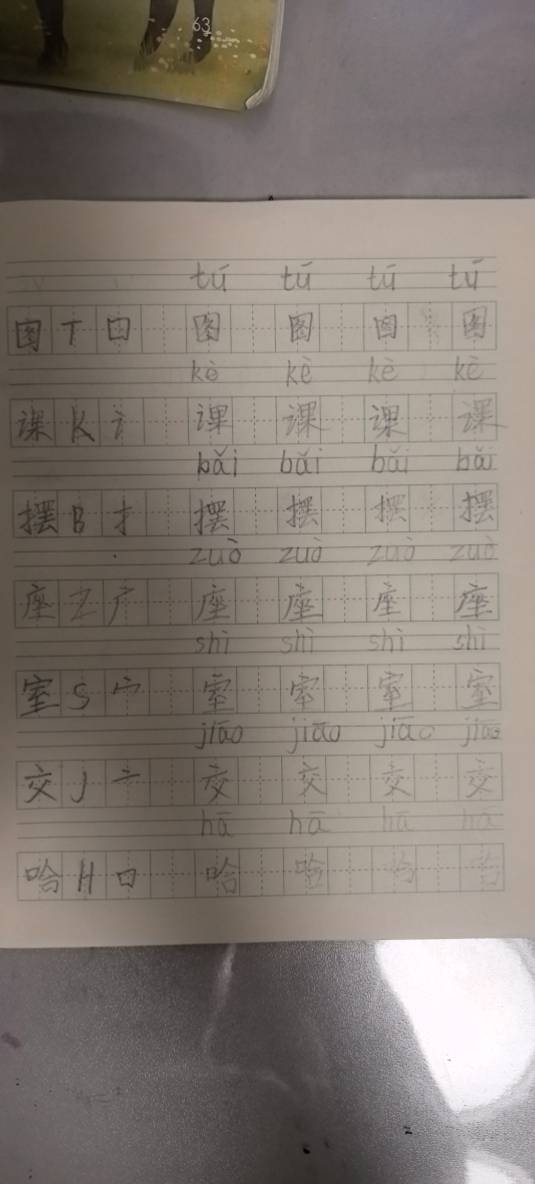 63
tú tú tú tú
图 T 囗 图 图 图 图
kè kè kè kè
课 K 讠 课 课 课 课
bǎi bǎi bǎi bǎi
摆 B 扌 摆 摆 摆 摆
zuò zuò zuò zuò
座 Z 广 座 座 座 座
shì shì shì shì
室 S 宀 室 室 室 室
jiāo jiāo jiāo jiāo
交 J 亠 交 交 交 交
hā hā hā hā
哈 H 口 哈 哈 哈 哈